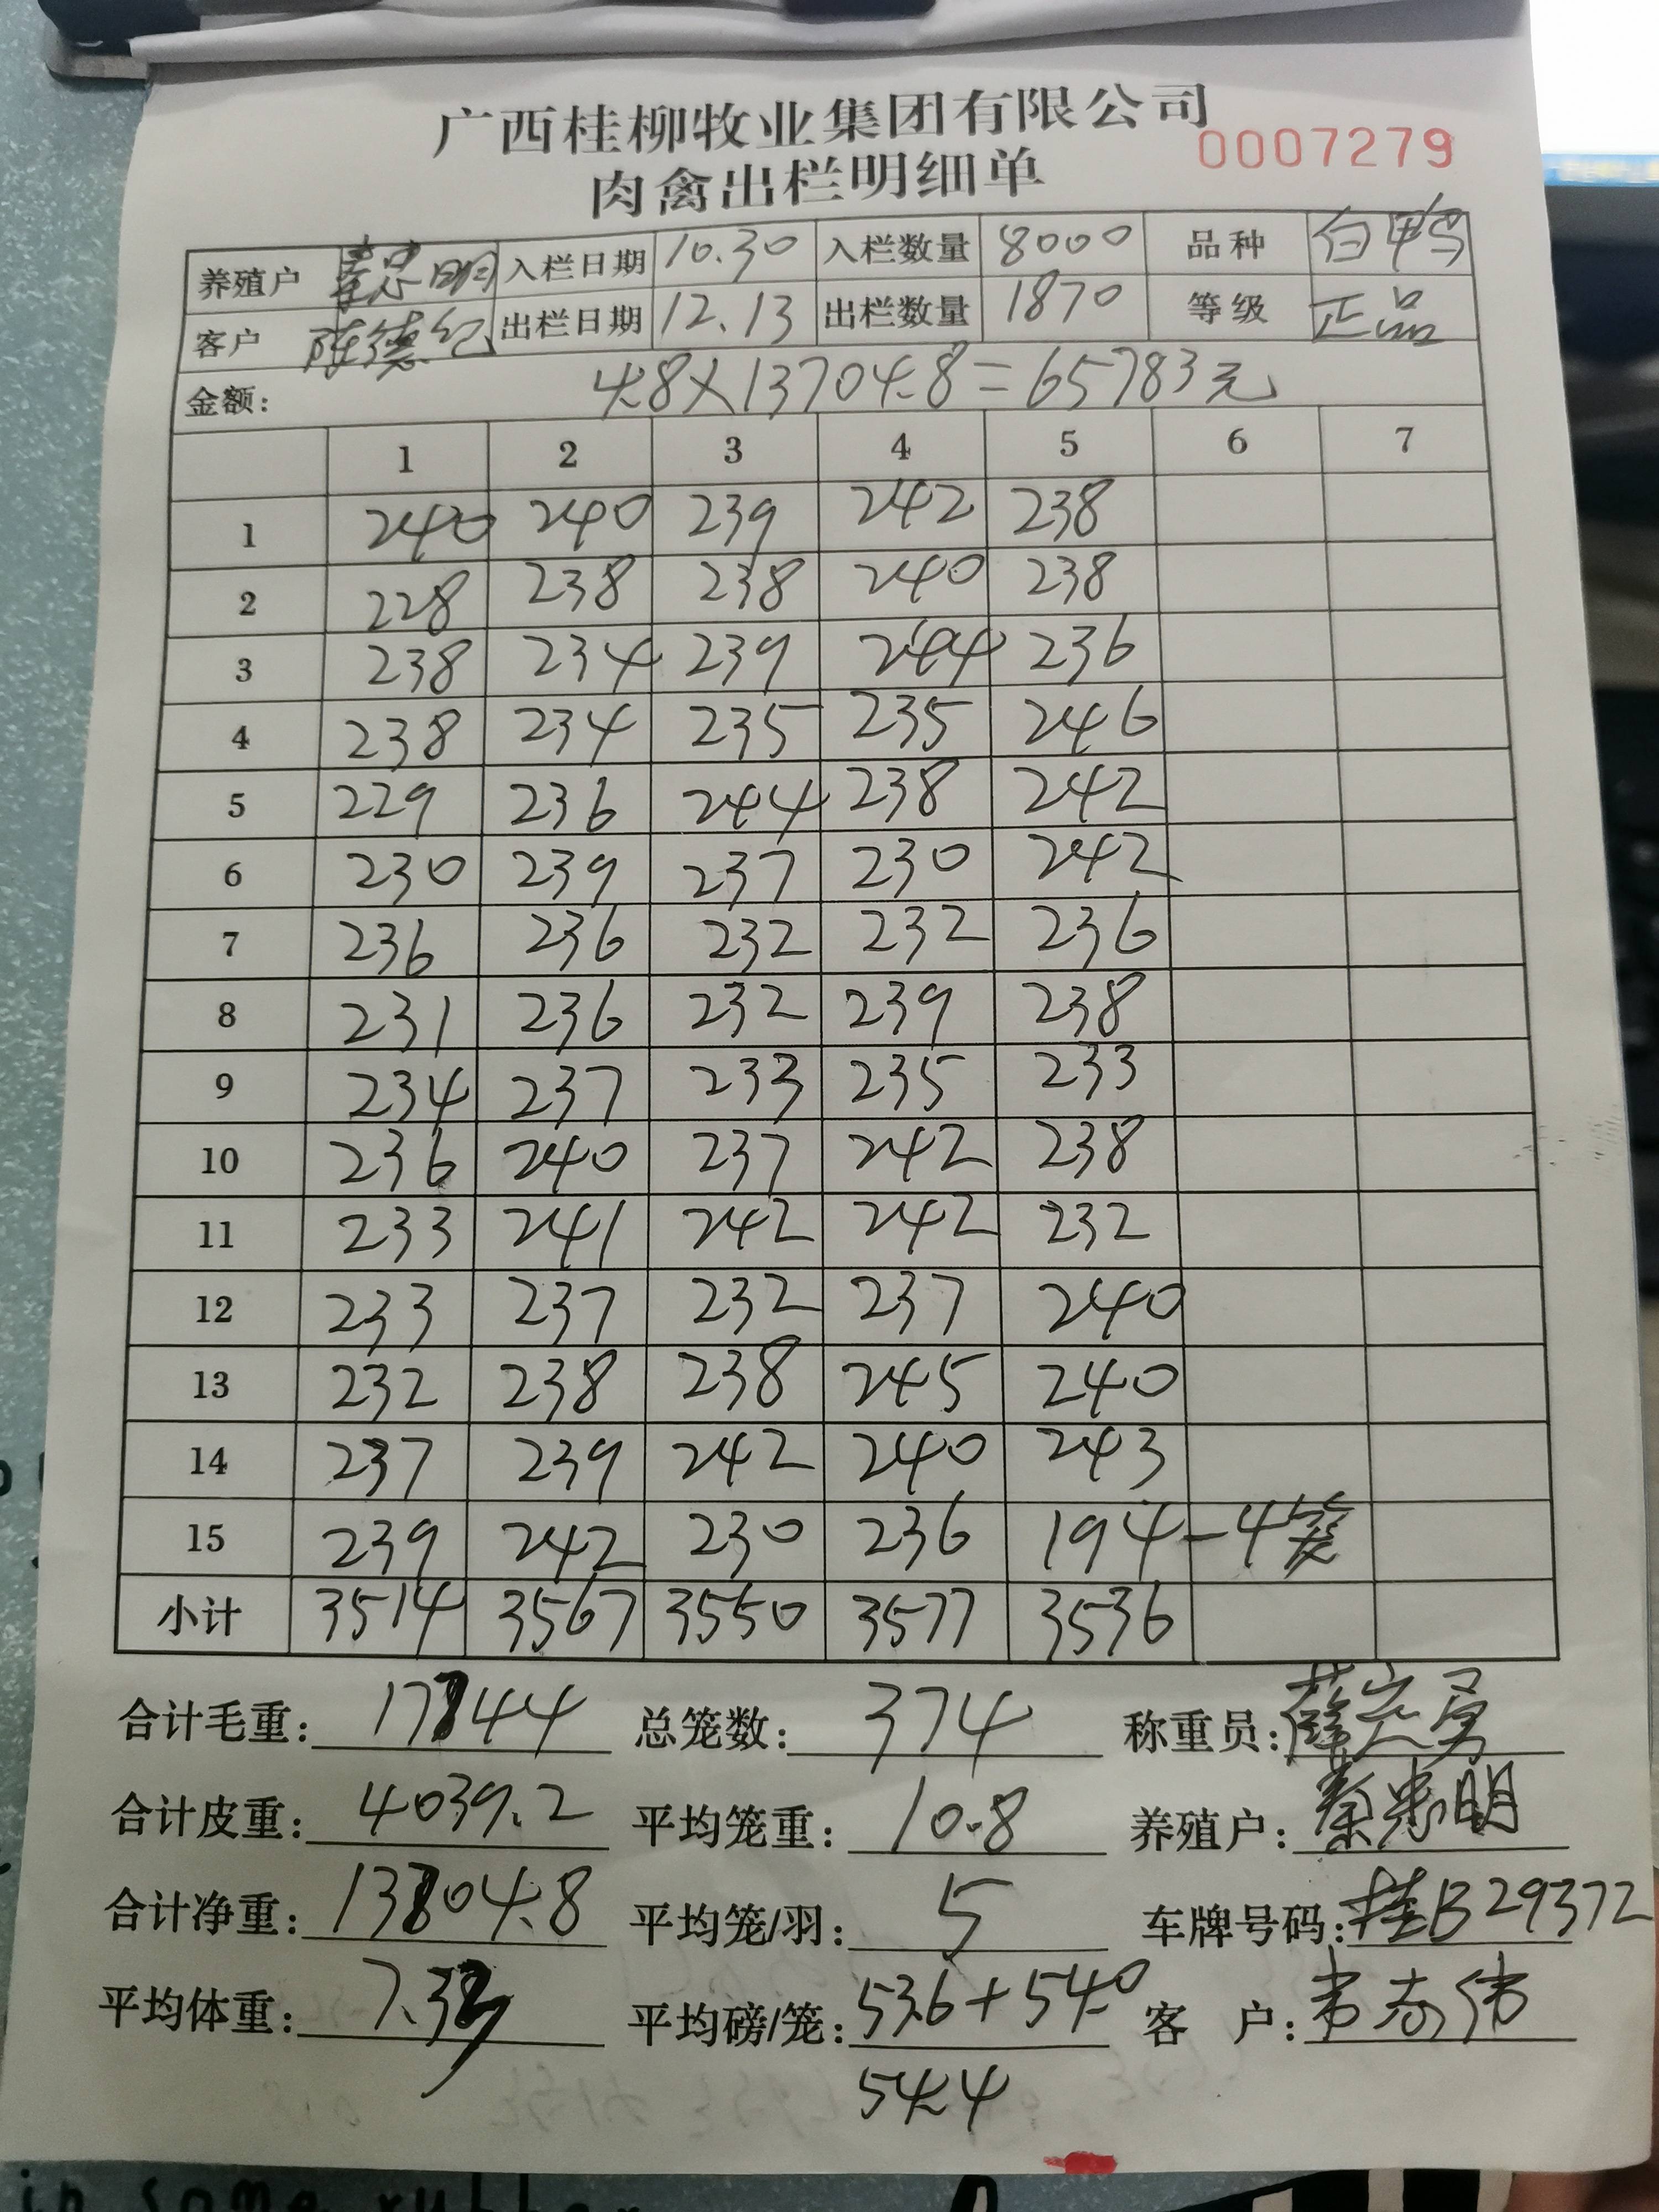 广西桂柳牧业集团有限公司
肉禽出栏明细单 0007279
养殖户 秦忠明 入栏日期 10.30 入栏数量 8000 品种 白鸭
客户 陈德纪 出栏日期 12.13 出栏数量 1870 等级 正品
金额: 4.8×13704.8=65783元
1 2 3 4 5 6 7
1 240 240 239 242 238
2 228 238 238 240 238
3 238 234 239 244 236
4 238 234 235 235 246
5 229 236 244 238 242
6 230 239 237 230 242
7 236 236 232 232 236
8 231 236 232 239 238
9 234 237 233 235 233
10 236 240 237 242 238
11 233 241 242 242 232
12 233 237 232 237 240
13 232 238 238 245 240
14 237 239 242 240 243
15 239 242 230 236 194-4笼
小计 3514 3567 3550 3577 3536
合计毛重: 17744 总笼数: 374 称重员:
合计皮重: 4039.2 平均笼重: 10.8 养殖户: 秦忠明
合计净重: 13704.8 平均笼/羽: 5 车牌号码: 桂B29372
平均体重: 7.33 平均磅/笼: 53.6+54.0 客 户: 韦志伟
54.4
in some rubber